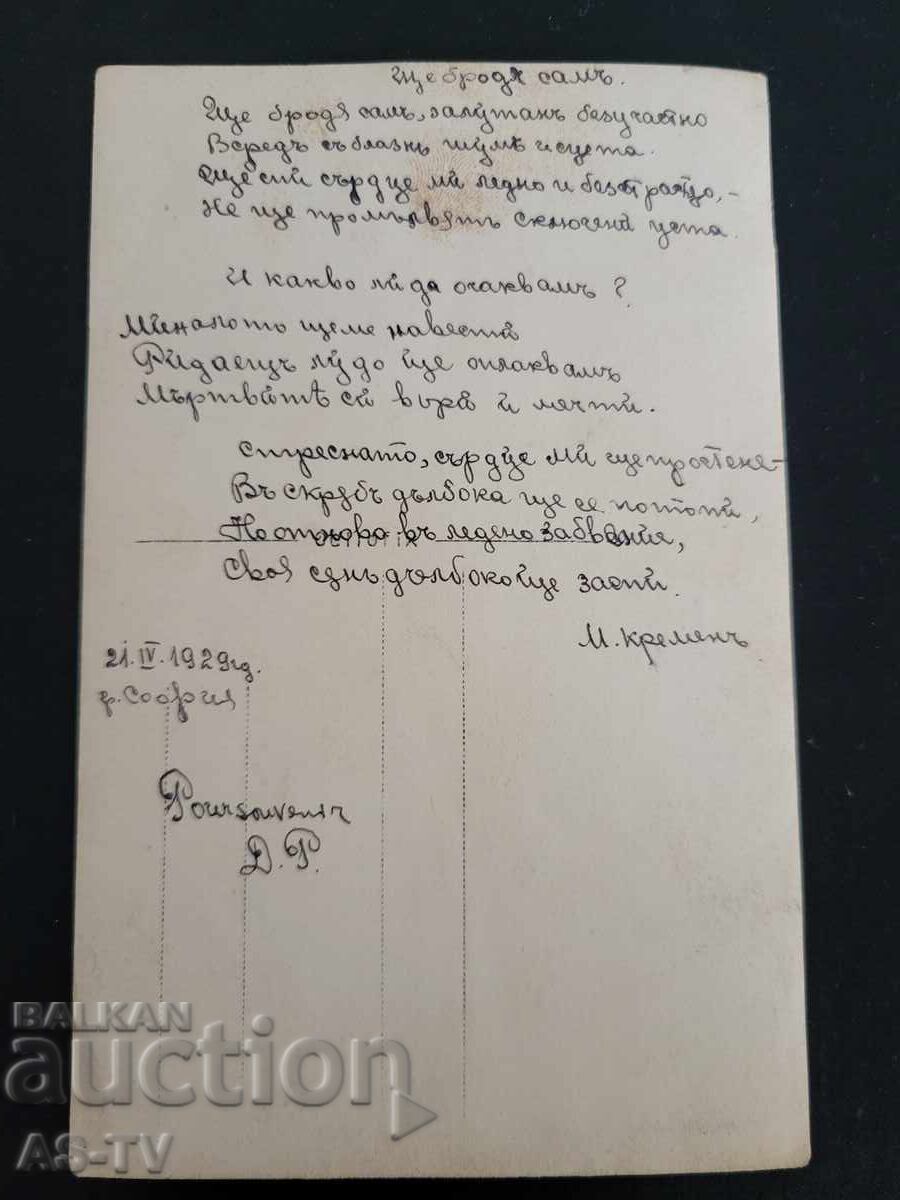 Ще бродя самъ.
Ще бродя самъ, залутанъ безучастно
Всредъ съблазнь шумъ и суета.
Ще спи сърдце ми ледно и безстрастно, -
Не ще промълвятъ сключени уста.
И какво ли да очаквамъ?
Миналото ще ме навести
Ридаещъ лудо ще оплаквамъ
Мъртвитѣ си вѣра и мечти.
Стреснато, сърдце ми ще простене -
Въ скръбь дълбока ще се потопи,
Но отново въ ледено забвения,
Своя сънь дълбоко ще заспи.
М. Кременъ
21. IV. 1929 гд.
гр. София
Pour souvenir
Д. Р.
BALKAN
auction
AS-TV